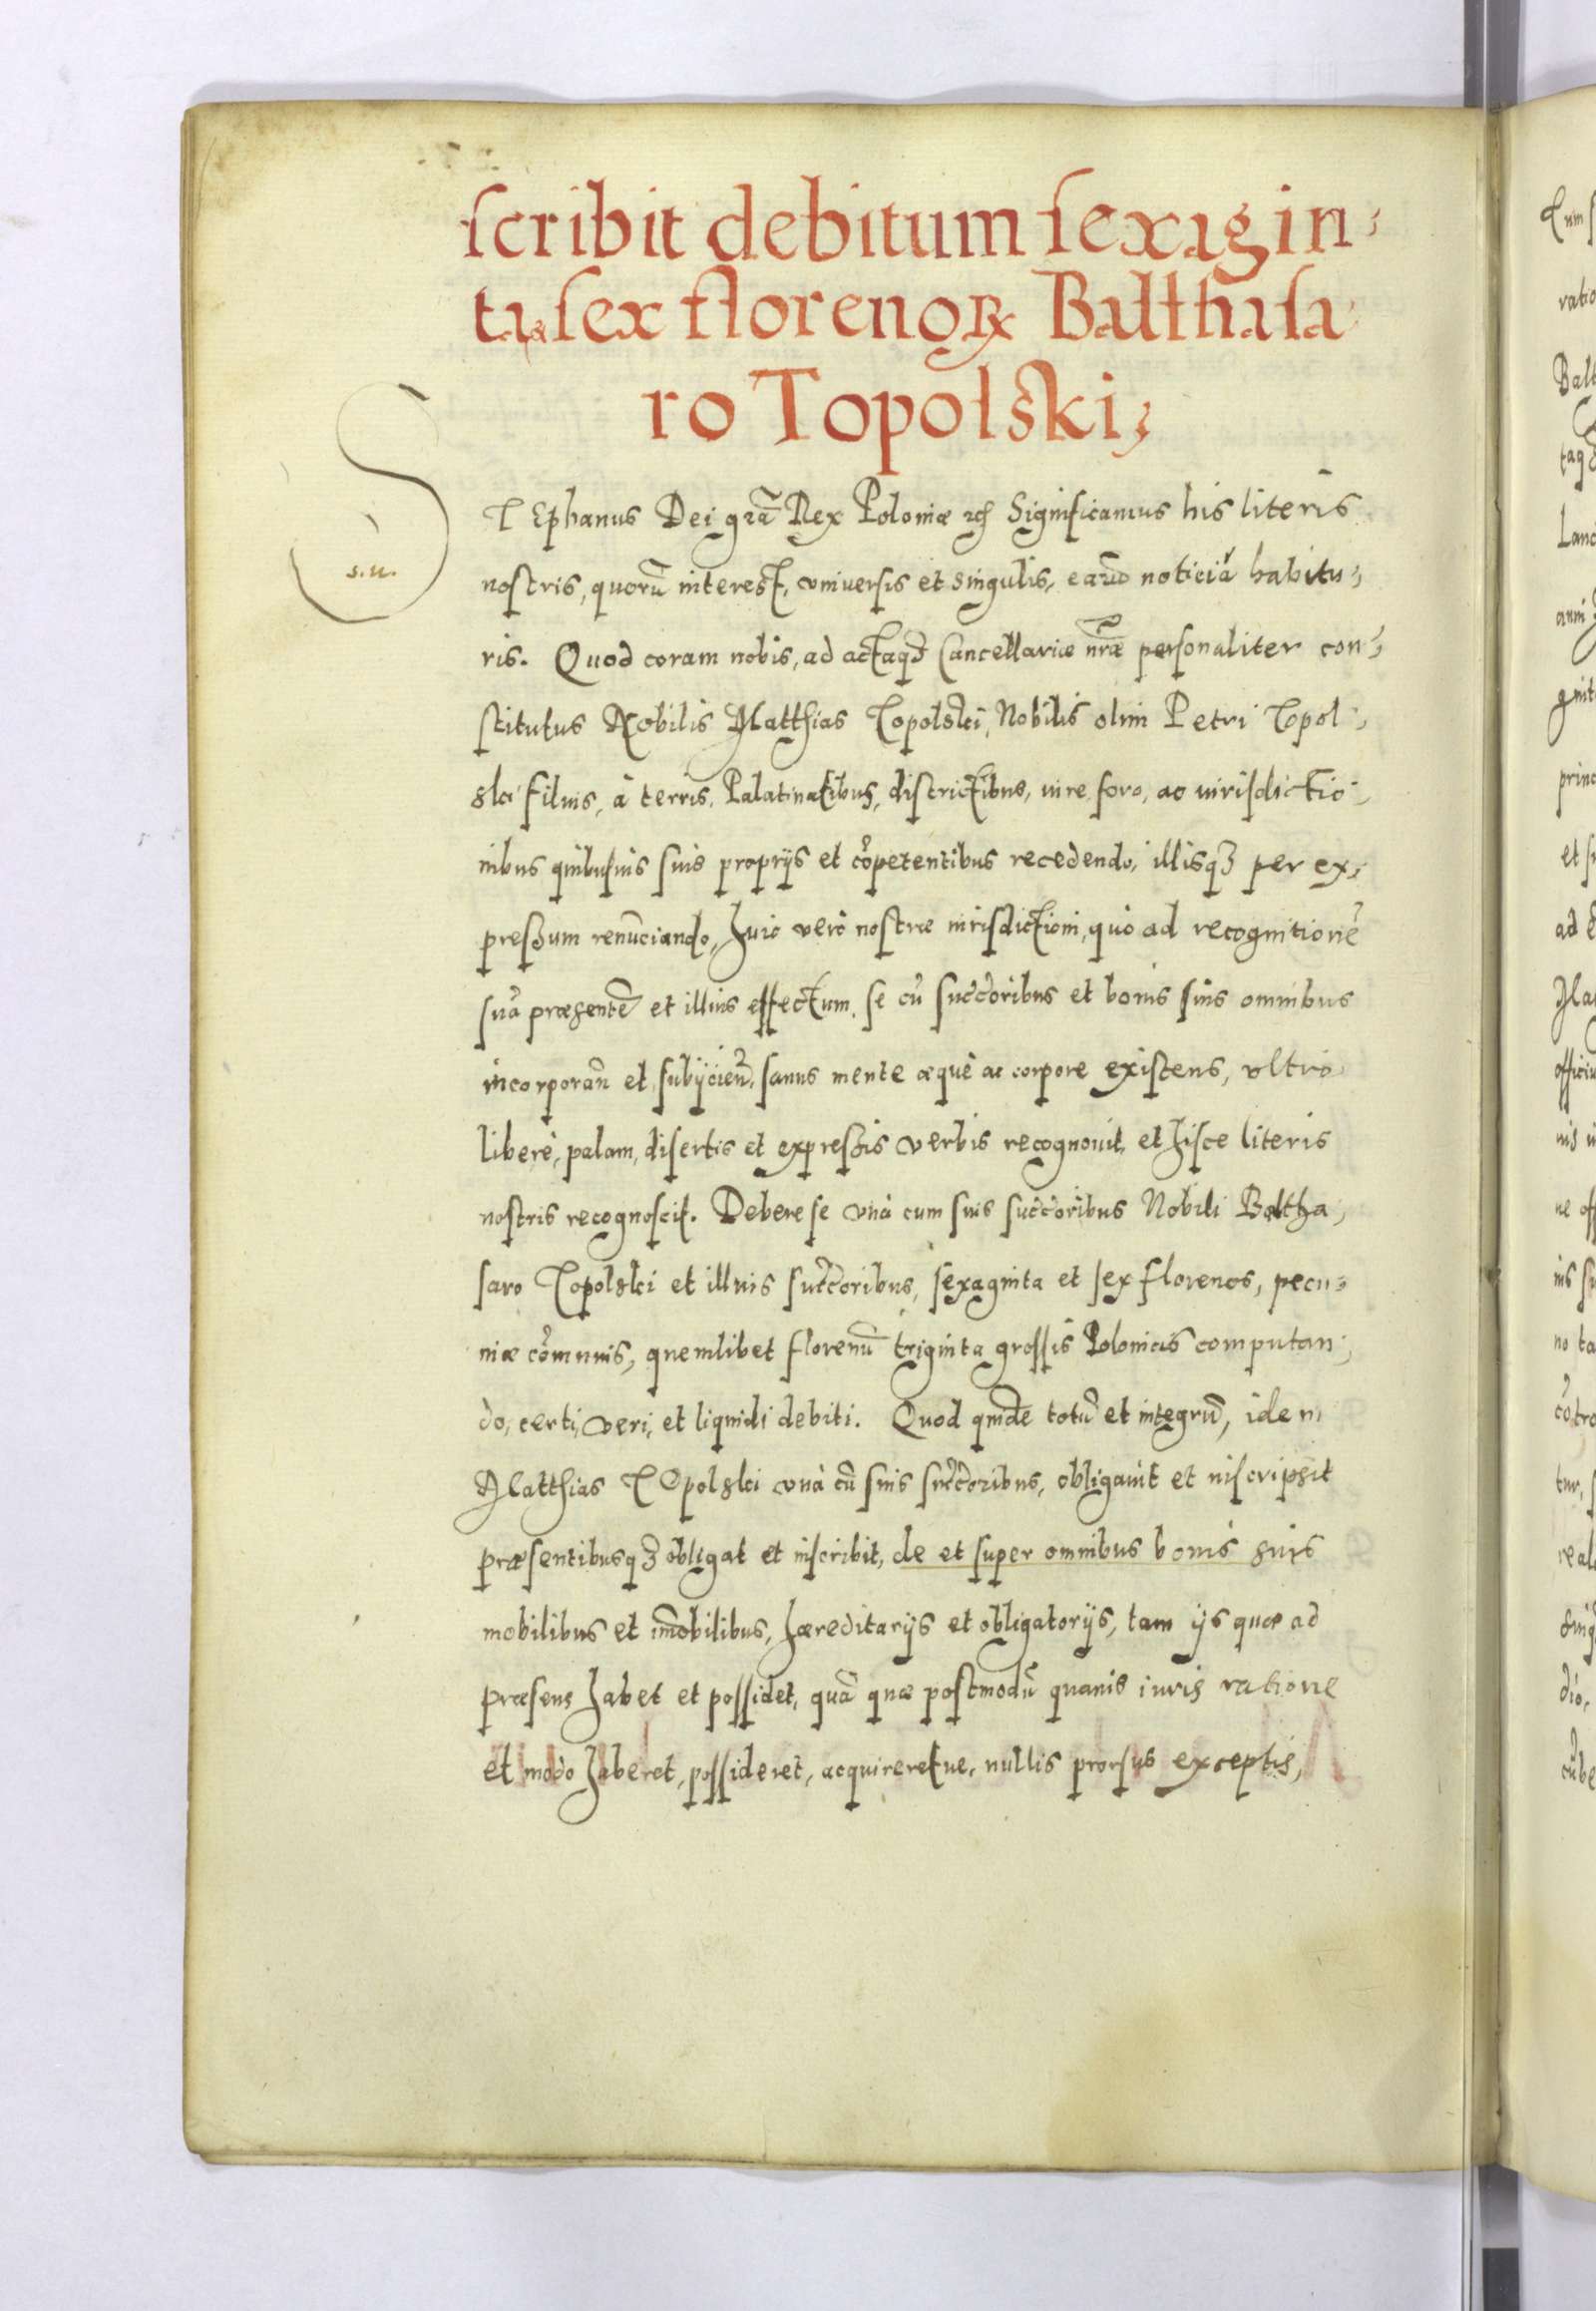 scribit debitum sexagin,
ta, sex florenoꝝ Balthasa,
ro Topolski,
STEphanus Dei grã Rex Poloniæ ꝛc̃ Significamus his literis
nostris, quorũ interest, vniversis et singulis, earũ noticiã habitu,
ris. Quod coram nobis, ad actaqꝫ Cancellariæ nr̃æ personaliter con,
stitutus Nobilis Matthias Topolski, Nobilis olim Petri Topol,
ski filius, à terris, Palatinatibus, districtibus, iure, foro, ac iurisdictio,
nibus quibusuis suis proprijs et cõpetentibus recedendo, illisqꝫ per ex,
pressum renũciando, huic verò nostræ iurisdictioni, quò ad recognitionẽ
suã præsentẽ et illius effectum, se cũ succ̃oribus et bonis suis omnibus
incorporan̄ et subijcien̄, sanus mente æquè ac corpore existens, vltrò
liberè, palam, disertis et expressis verbis recognouit, et hisce literis
nostris recognoscit. Debere se vnà cum suis succ̃oribus Nobili Baltha,
saro Topolski et illius succ̃oribus, sexaginta et sex florenos, pecu,
niæ cõmunis, quemlibet florenũ triginta grossis Polonicis computan,
do, certi, veri, et liquidi debiti. Quod quidẽ totũ et integrũ, idem
Matthias TOpolski vnà cũ suis succ̃oribus, obligauit et inscripsit
præsentibusqꝫ obligat et inscribit, de et super omnibus bonis suis
mobilibus et im̃obilibus, hæreditarijs et obligatorijs, tam ijs quæ ad
præsens habet et possidet, quã quæ postmodũ quauis iuris ratione
et modo haberet, possideret, acquireretue, nullis prorsus exceptis,
s.u.